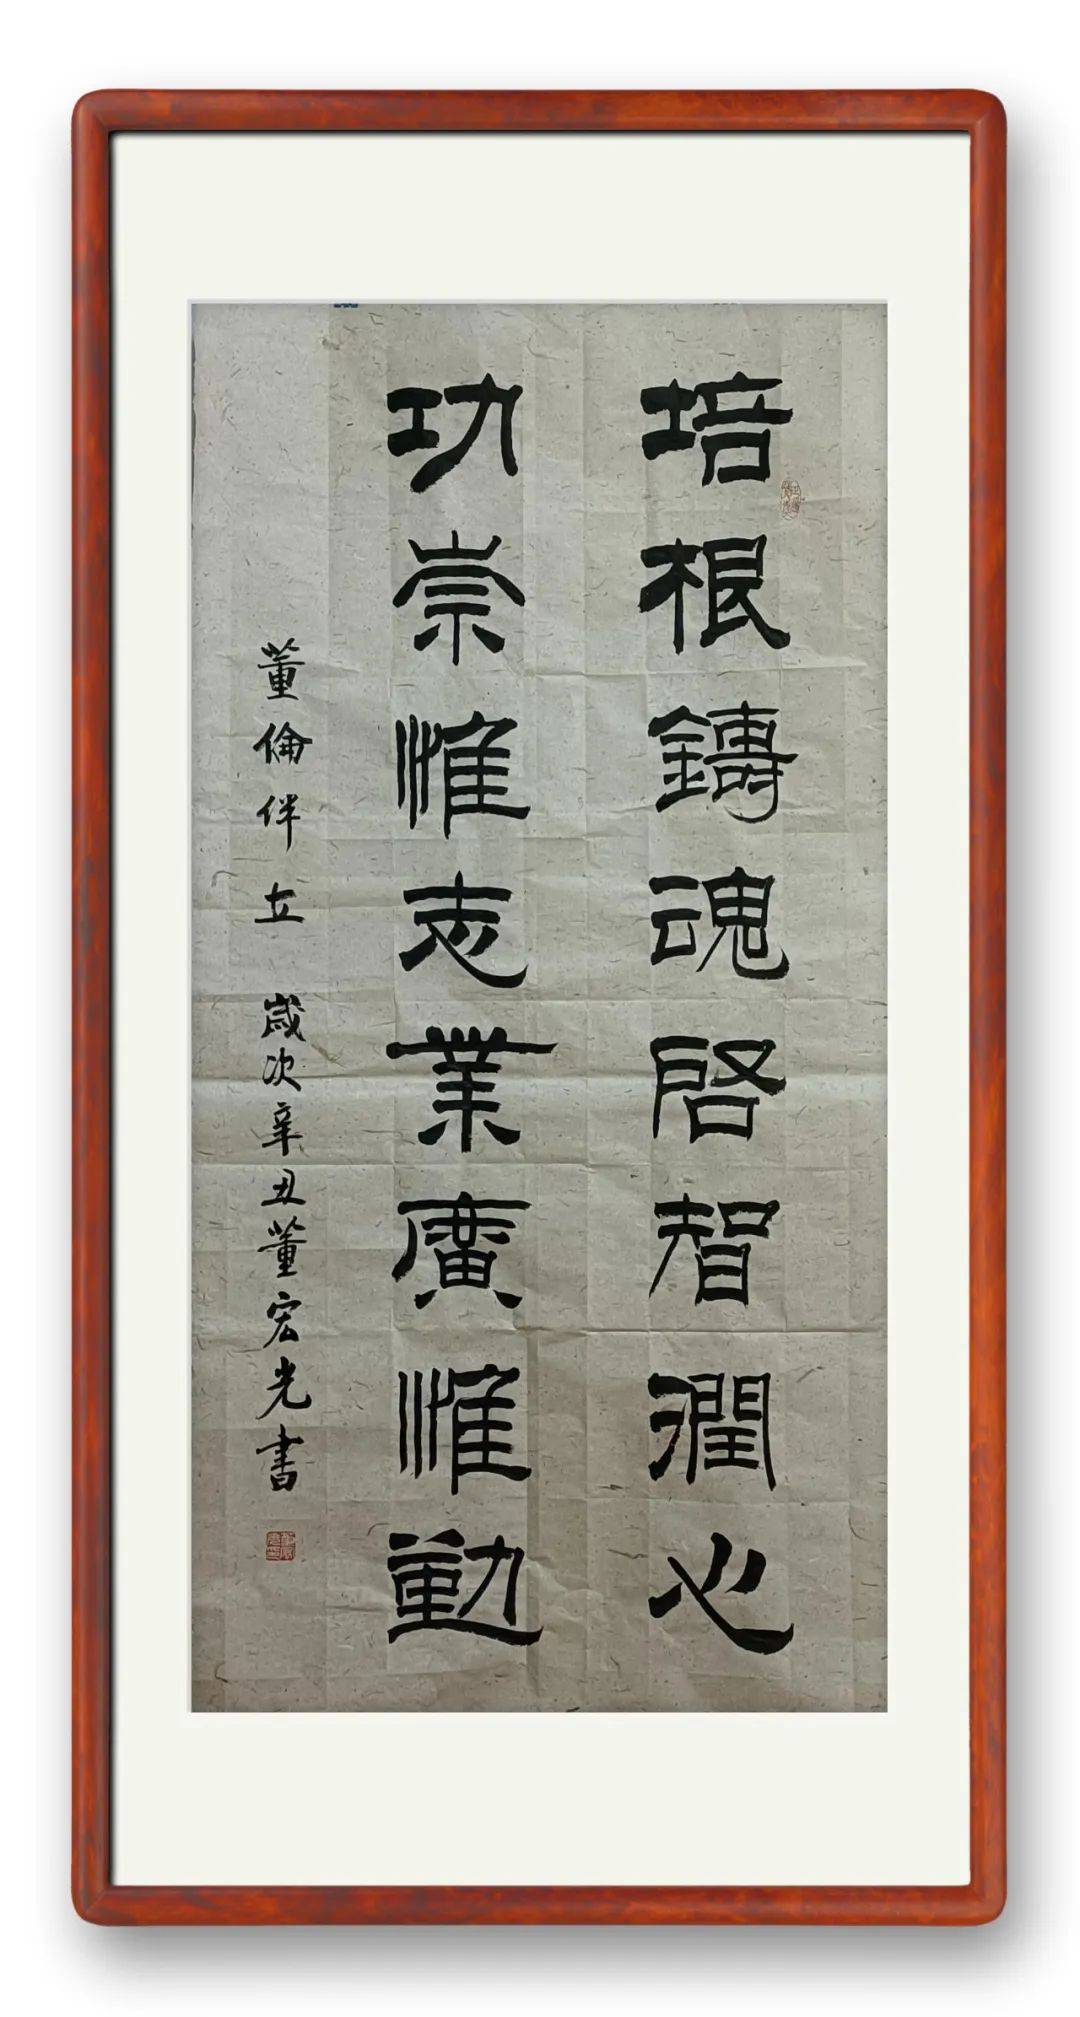 培根鑄魂啓智潤心
功崇惟志業廣惟勤
董倫伴立 歲次辛丑董宏光書